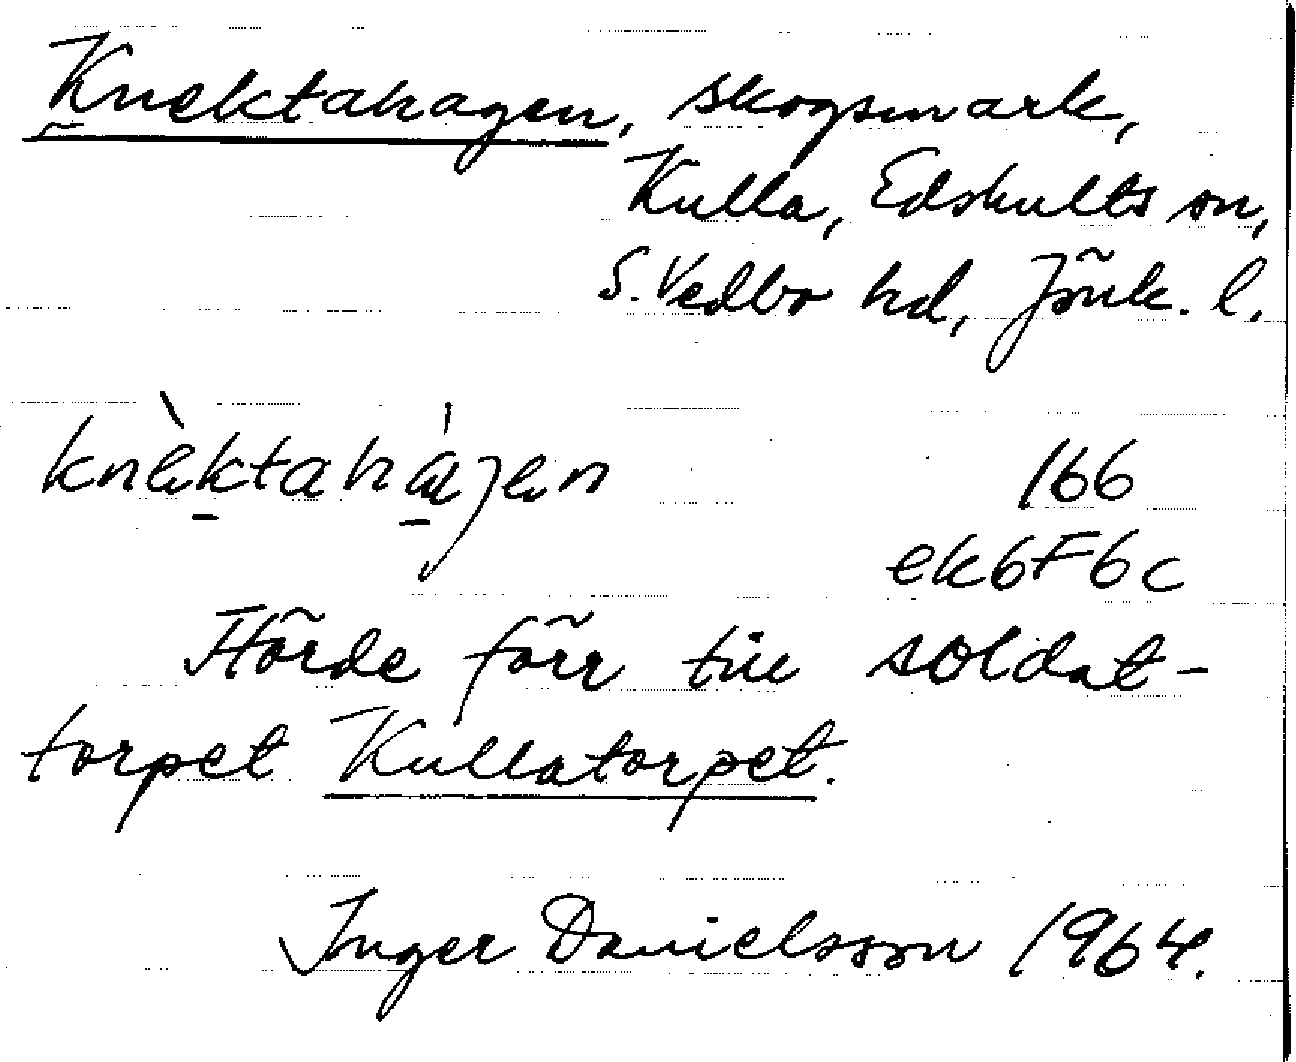 Knektahagen, skogsmark,
Kulla, Edshults sn,
S. Vedbo hd, Jönk. l.
knὲktahájen
166
ek6F6c
Hörde förr till soldat-
torpet Kullatorpet.
Inger Danielsson 1964.